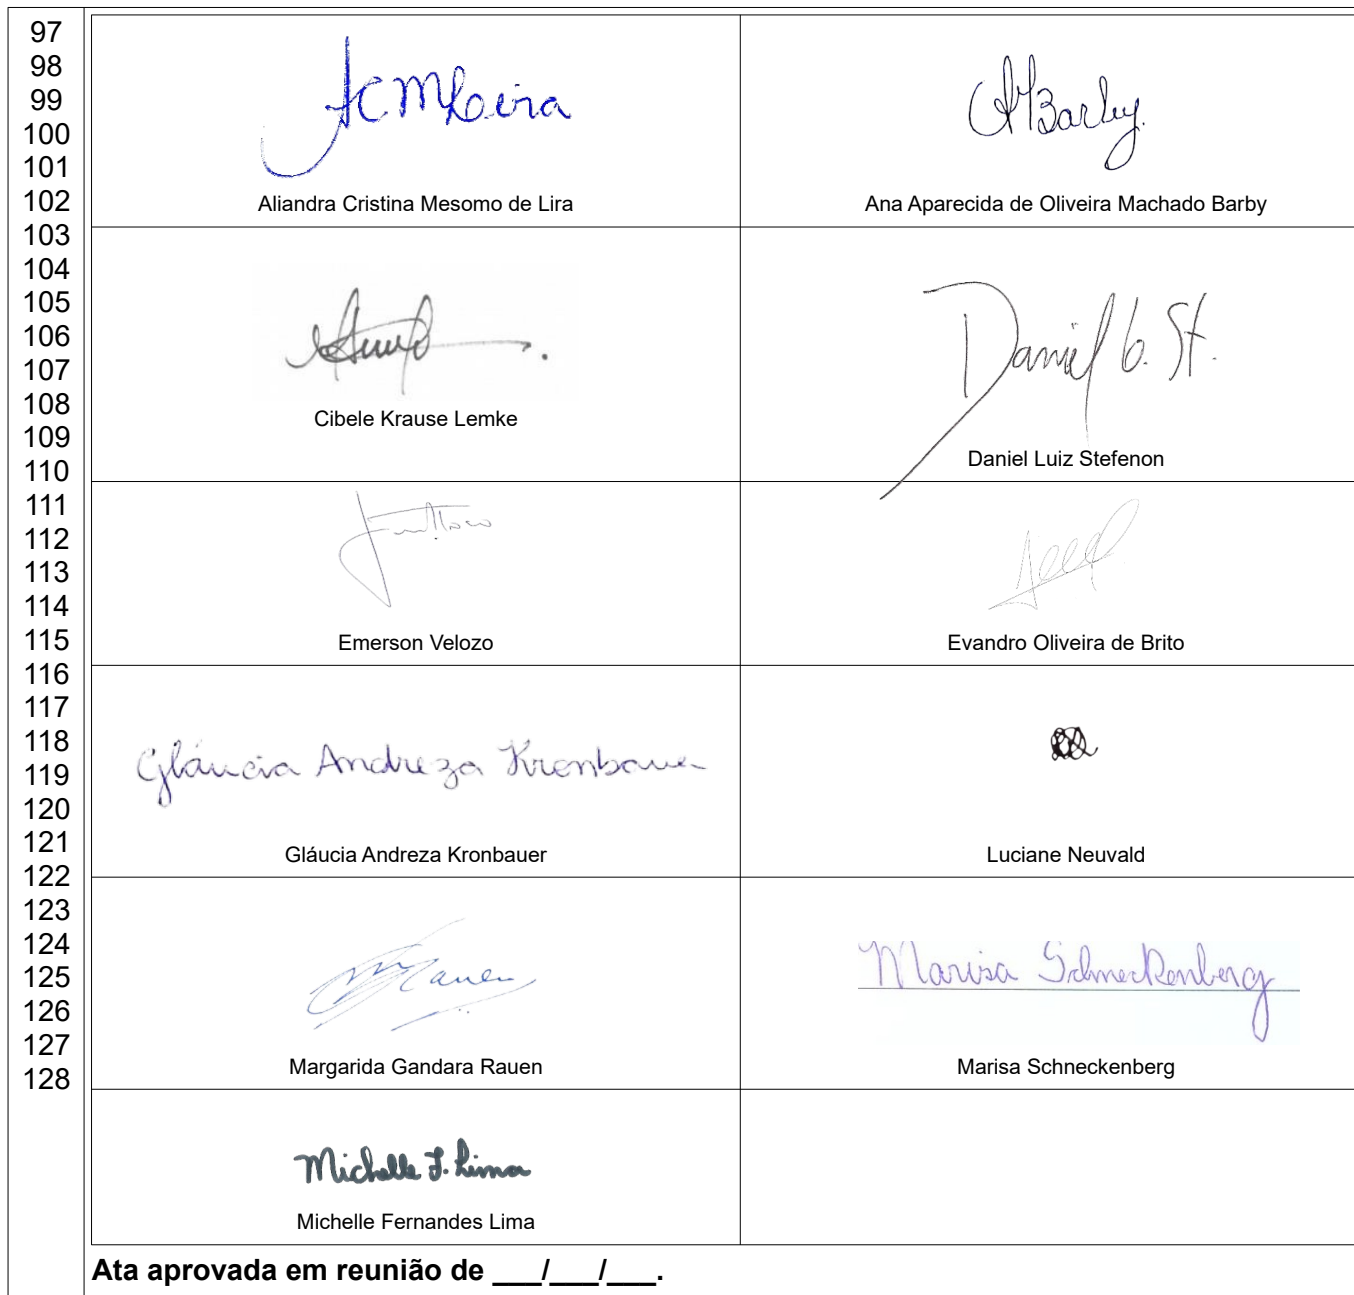 97
98
99
100
101
102
103
104
105
106
107
108
109
110
111
112
113
114
115
116
117
118
119
120
121
122
123
124
125
126
127
128
ACMLira
AMBarby
Aliandra Cristina Mesomo de Lira
Ana Aparecida de Oliveira Machado Barby
Daniel L. St.
Cibele Krause Lemke
Daniel Luiz Stefenon
Emerson Velozo
Evandro Oliveira de Brito
Gláucia Andreza Kronbauer
Gláucia Andreza Kronbauer
Luciane Neuvald
Rauen
Marisa Schneckenberg
Margarida Gandara Rauen
Marisa Schneckenberg
Michelle F. Lima
Michelle Fernandes Lima
Ata aprovada em reunião de ___/___/___.